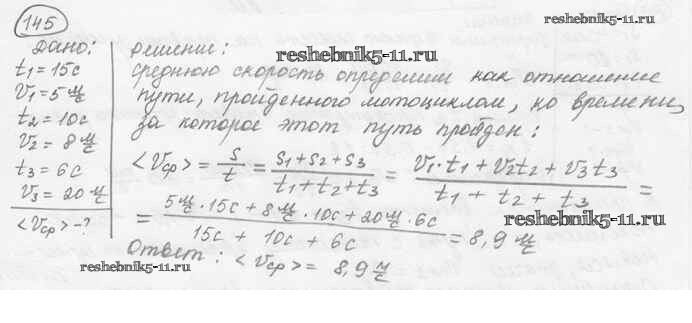 145
reshebnik5-11.ru
Дано:
t₁ = 15с
V₁ = 5 м/с
t₂ = 10с
V₂ = 8 м/с
t₃ = 6с
V₃ = 20 м/с
<Vср> - ?
Решение:
reshebnik5-11.ru
среднюю скорость определим как отношение
пути, пройденного мотоциклом, ко времени,
за которое этот путь пройден:
<Vср> = s/t = (s₁+s₂+s₃)/(t₁+t₂+t₃) = (V₁·t₁+V₂t₂+V₃t₃)/(t₁+t₂+t₃) =
= (5 м/с·15с + 8 м/с·10с + 20 м/с·6с)/(15с + 10с + 6с) = 8,9 м/с
reshebnik5-11.ru
Ответ: <Vср> = 8,9 м/с
reshebnik5-11.ru